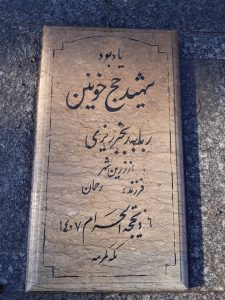 یادبود
شهید حج خونین
ربابه رنجبر ریزی
از زرین شهر
فرزند: رحمان
۶ ذیحجه الحرام ۱۴۰۷
مکه مکرمه